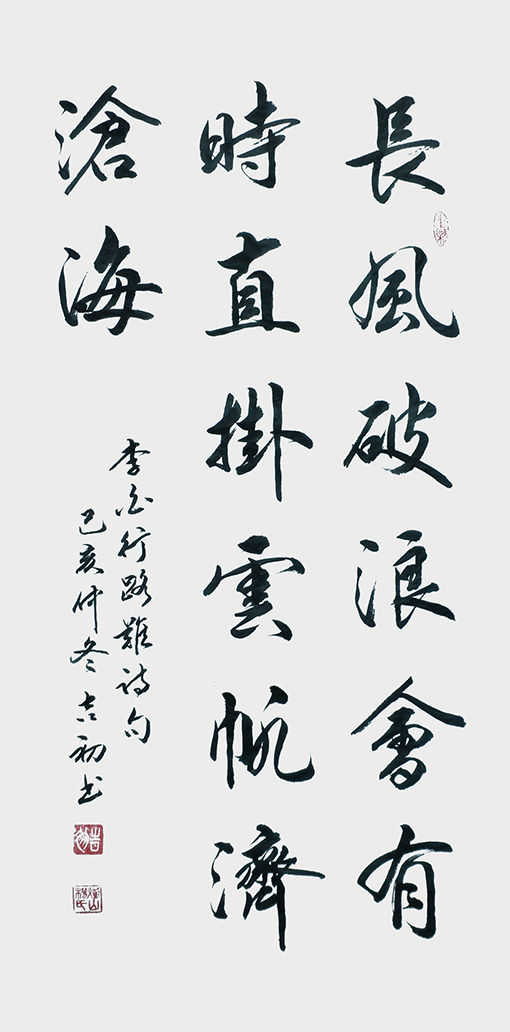 長風破浪會有
時直掛雲帆濟
滄海
李白行路難詩句
己亥仲冬吉初书